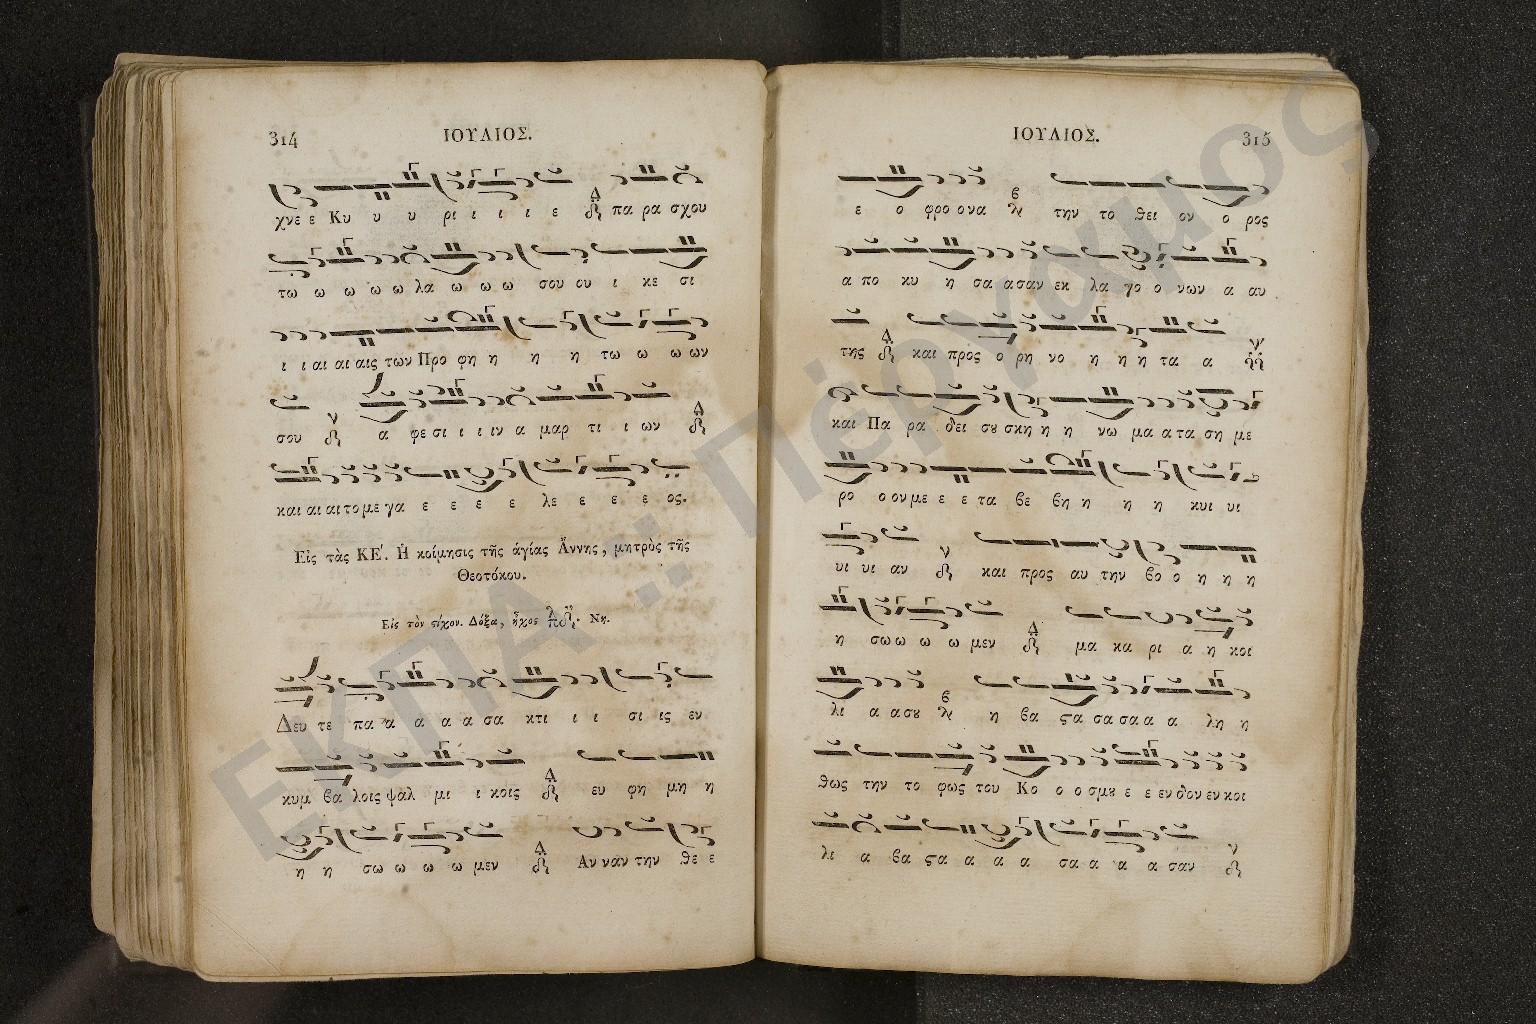 314
ΙΟΥΛΙΟΣ.
χνε ε Κυ υ υ ρι ι ι ι ε πα ρα σχου
τω ω ω ω ω λα ω ω ω σου ου ι κε σι
ι ι αι αι αις των Προ φη η η η τω ω ω ων
σου α φε σι ι ι ιν α μαρ τι ι ων
και αι αι το με γα ε ε ε ε λε ε ε ε ος.
Εἰς τὰς ΚΕ΄. Ἡ κοίμησις τῆς ἁγίας Ἄννης, μητρὸς τῆς
Θεοτόκου.
Εἰς τὸν ϛίχον. Δόξα, ἦχος Νη.
Δευ τε πα α α α α σα κτι ι ι σι ις εν
κυμ βα λοις ψαλ μι ι κοις ευ φη μη η
η η σω ω ω ω μεν Αν ναν την θε ε
ΙΟΥΛΙΟΣ.
315
ε ο φρο ο να την το θει ον ο ρος
α πο κυ η σα α σαν εκ λα γο ο νων α αυ
της και προς ο ρη νο η η η τα α
και Πα ρα δει σȣ σκη η η νω μα α τα ση με
ρο ο ον με ε ε τα βε βη η η η κυι υι
υι υι αν και προς αυ την βο ο η η η
η σω ω ω ω μεν μα κα ρι α η κοι
λι α α σȣ η βα ϛα σα σα α α λη η
θως την το φως του Κο ο ο σμȣ ε ε εν δον εν κοι
λι α βα ϛα α α α σα α α α σαν
ΕΚΠΑ :: Πέργαμος